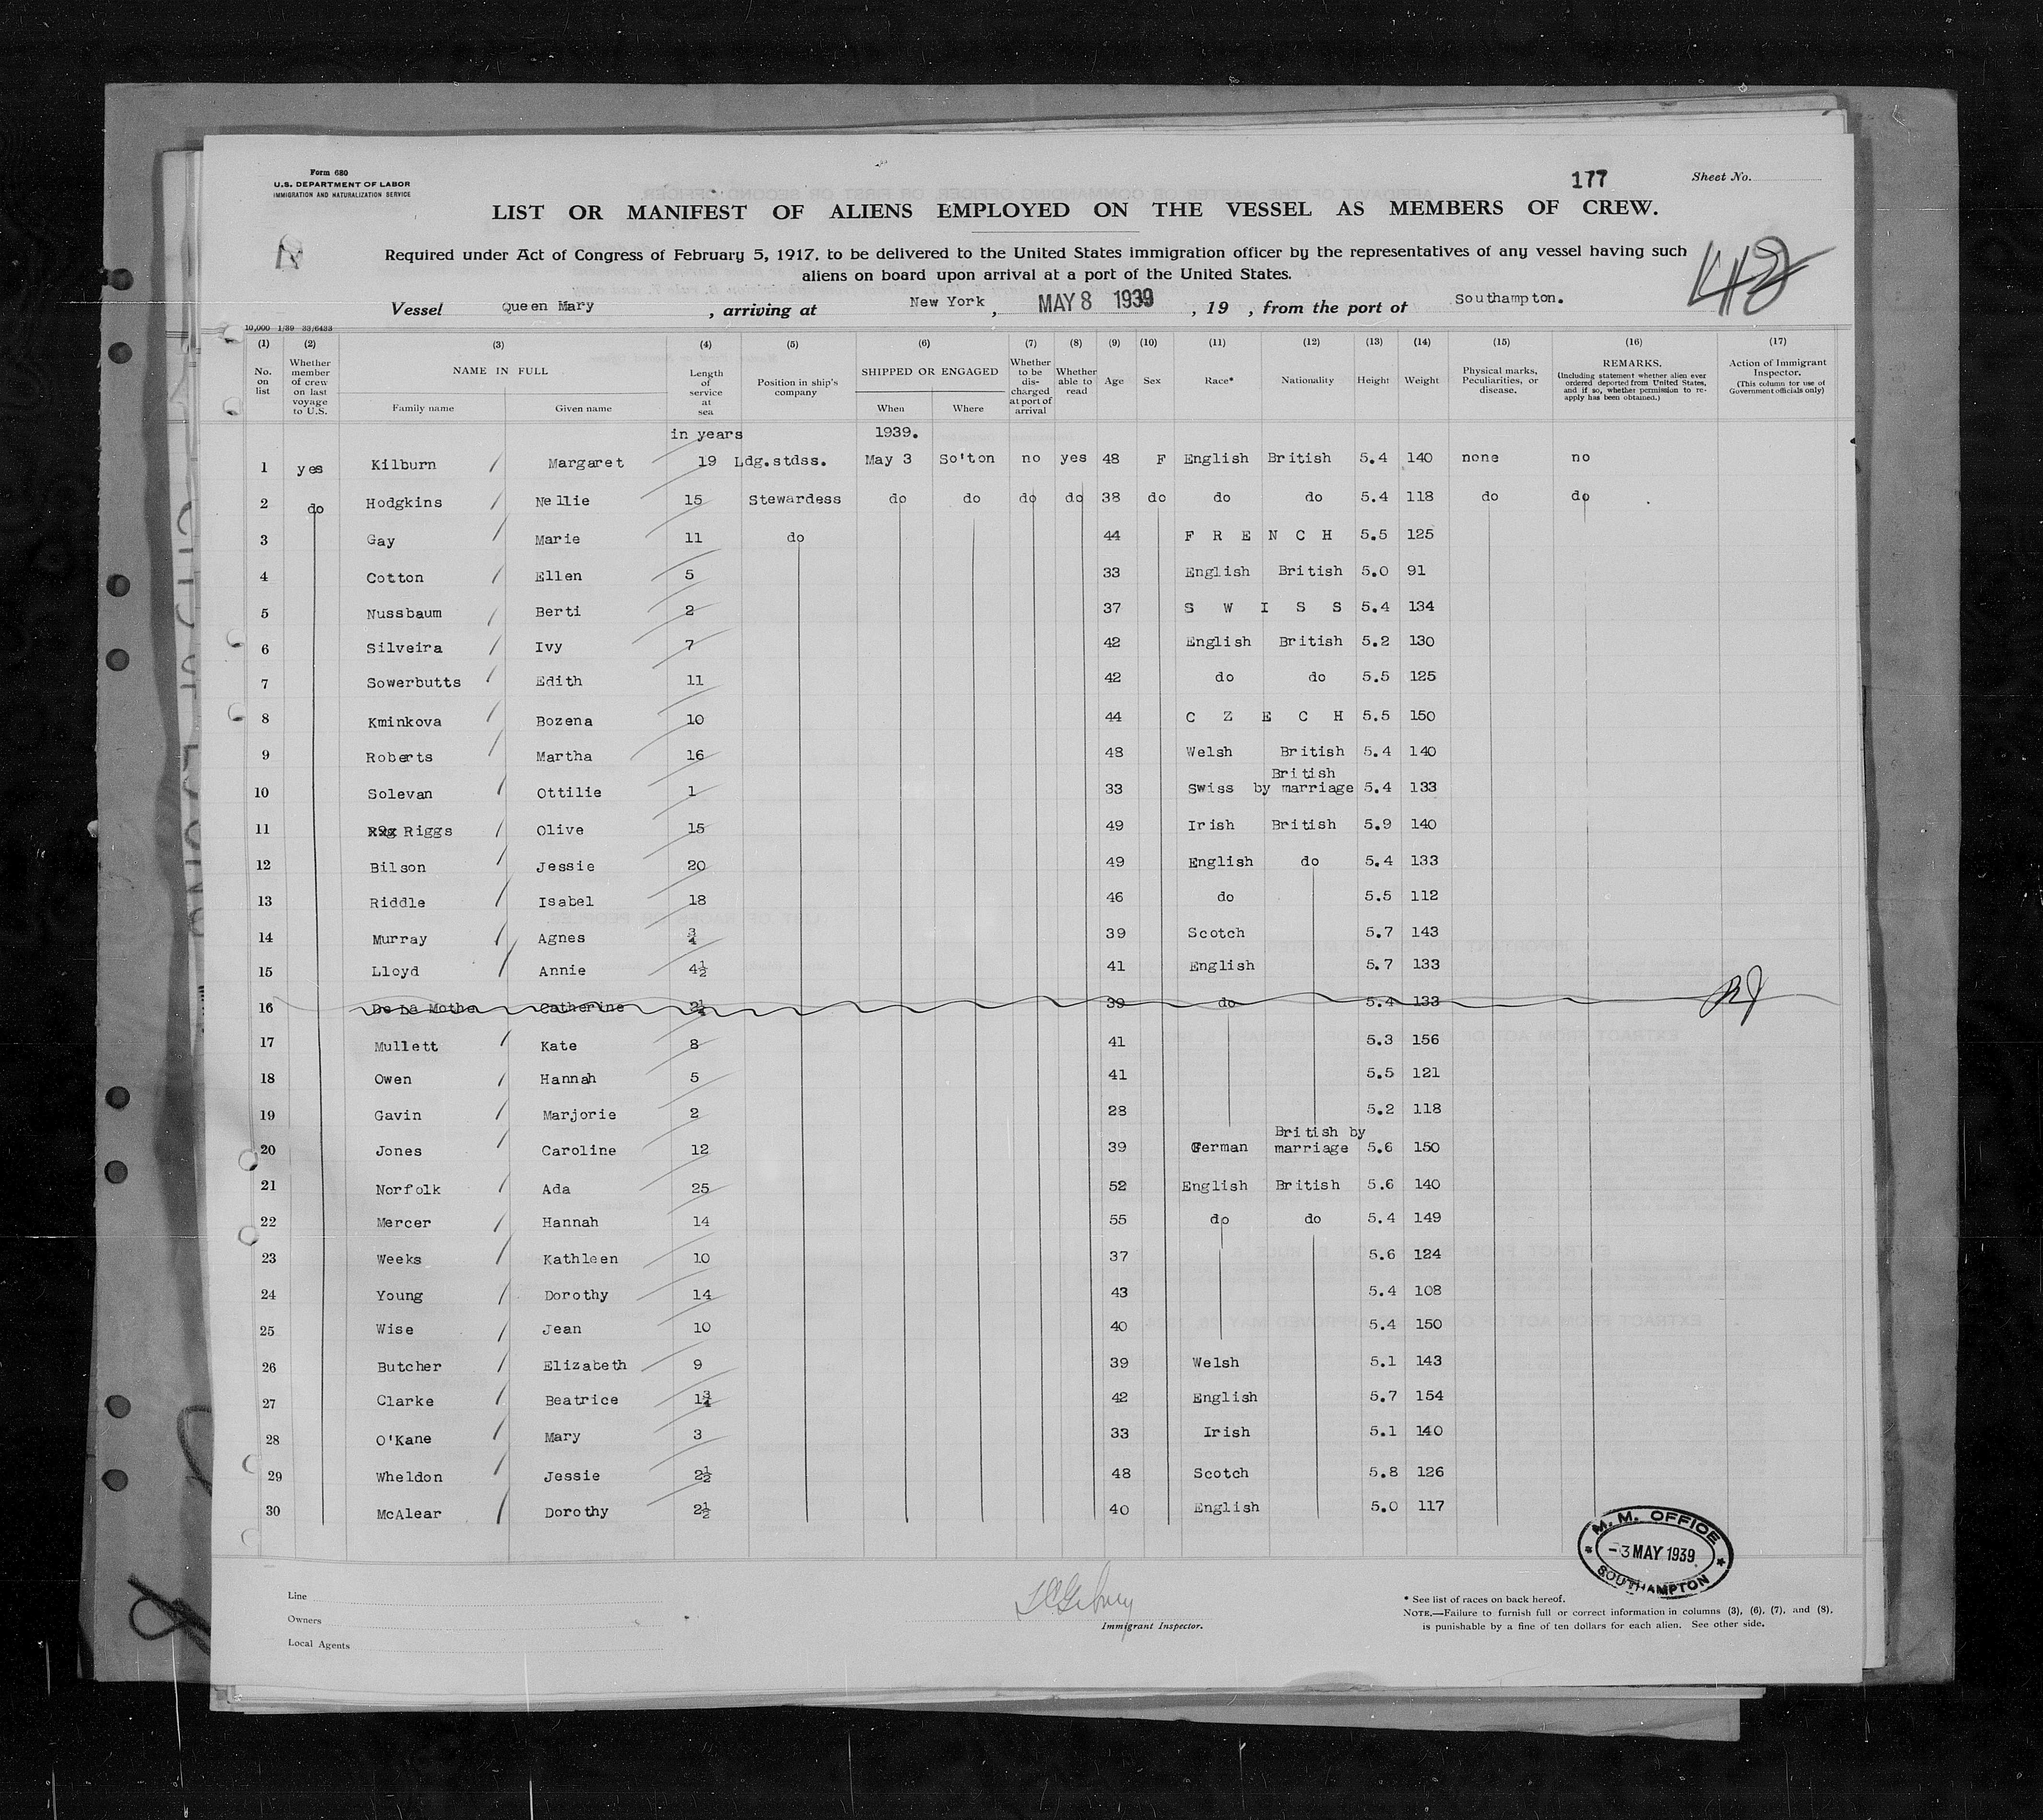 Form 680
U.S. DEPARTMENT OF LABOR
IMMIGRATION AND NATURALIZATION SERVICE
177
Sheet No.
LIST OR MANIFEST OF ALIENS EMPLOYED ON THE VESSEL AS MEMBERS OF CREW.
Required under Act of Congress of February 5, 1917, to be delivered to the United States immigration officer by the representatives of any vessel having such
aliens on board upon arrival at a port of the United States.
Vessel Queen Mary, arriving at New York, MAY 8 1939, 19 , from the port of Southampton.
10,000 1/39 33/6433
(1) (2) (3) (4) (5) (6) (7) (8) (9) (10) (11) (12) (13) (14) (15) (16) (17)
No. on list
Whether member of crew on last voyage to U.S.
NAME IN FULL
Family name Given name
Length of service at sea
Position in ship's company
SHIPPED OR ENGAGED
When Where
Whether to be discharged at port of arrival
Whether able to read
Age
Sex
Race*
Nationality
Height
Weight
Physical marks, Peculiarities, or disease.
REMARKS.
(Including statement whether alien ever ordered deported from United States, and if so, whether permission to reapply has been obtained.)
Action of Immigrant Inspector.
(This column for use of Government officials only)
in years 1939.
1 yes Kilburn Margaret 19 Ldg.stdss. May 3 So'ton no yes 48 F English British 5.4 140 none no
2 do Hodgkins Nellie 15 Stewardess do do do do 38 do do do 5.4 118 do do
3 Gay Marie 11 do 44 F R E N C H 5.5 125
4 Cotton Ellen 5 33 English British 5.0 91
5 Nussbaum Berti 2 37 S W I S S 5.4 134
6 Silveira Ivy 7 42 English British 5.2 130
7 Sowerbutts Edith 11 42 do do 5.5 125
8 Kminkova Bozena 10 44 C Z E C H 5.5 150
9 Roberts Martha 16 48 Welsh British 5.4 140
10 Solevan Ottilie 1 33 Swiss British by marriage 5.4 133
11 Riggs Olive 15 49 Irish British 5.9 140
12 Bilson Jessie 20 49 English do 5.4 133
13 Riddle Isabel 18 46 do 5.5 112
14 Murray Agnes ¾ 39 Scotch 5.7 143
15 Lloyd Annie 4½ 41 English 5.7 133
16 De La Mothe Catherine 2¼ 39 do 5.4 133
17 Mullett Kate 8 41 5.3 156
18 Owen Hannah 5 41 5.5 121
19 Gavin Marjorie 2 28 5.2 118
20 Jones Caroline 12 39 German British by marriage 5.6 150
21 Norfolk Ada 25 52 English British 5.6 140
22 Mercer Hannah 14 55 do do 5.4 149
23 Weeks Kathleen 10 37 5.6 124
24 Young Dorothy 14 43 5.4 108
25 Wise Jean 10 40 5.4 150
26 Butcher Elizabeth 9 39 Welsh 5.1 143
27 Clarke Beatrice 1¾ 42 English 5.7 154
28 O'Kane Mary 3 33 Irish 5.1 140
29 Wheldon Jessie 2½ 48 Scotch 5.8 126
30 McAlear Dorothy 2½ 40 English 5.0 117
M. M. OFFICE
-3 MAY 1939
SOUTHAMPTON
Line
Owners
Local Agents
Immigrant Inspector.
* See list of races on back hereof.
NOTE.—Failure to furnish full or correct information in columns (3), (6), (7), and (8),
is punishable by a fine of ten dollars for each alien. See other side.